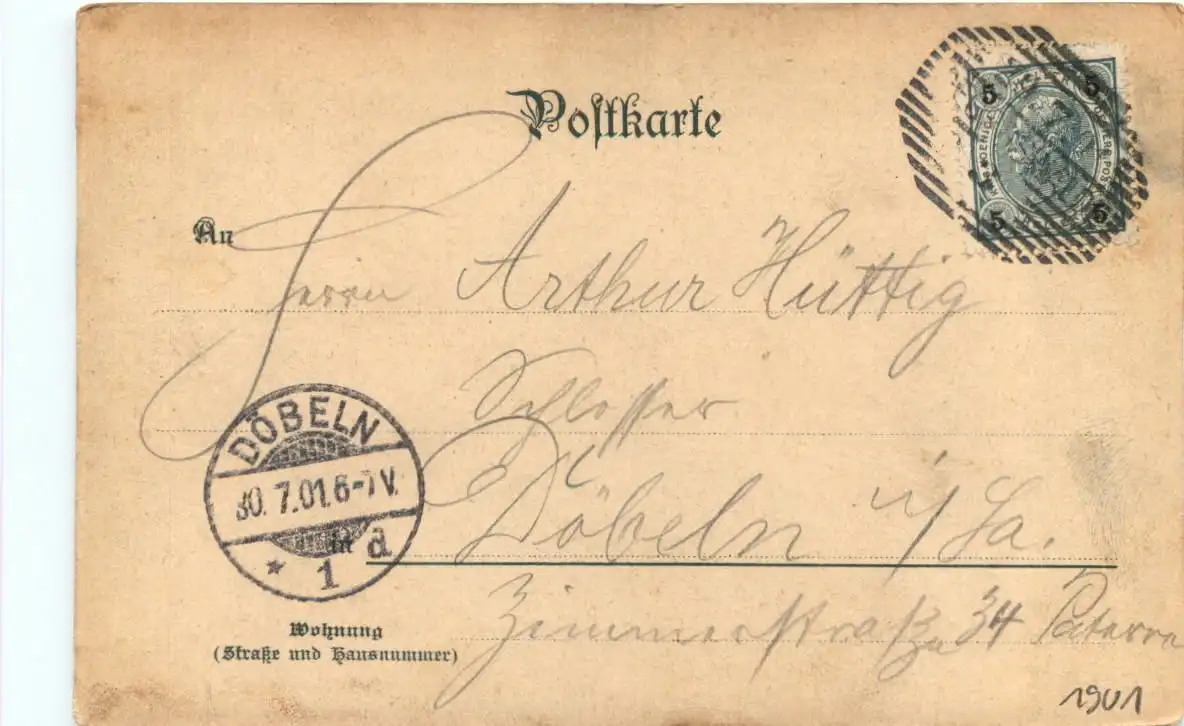 Postkarte
5 5
5 5
An
Herrn Arthur Hüttig
Schlosser
Döbeln i/Sa.
in
Zimmerstraße 34 Paterre
Wohnung
(Straße und Hausnummer)
DÖBELN
30.7.01.6-7V.
* 1 a
1901